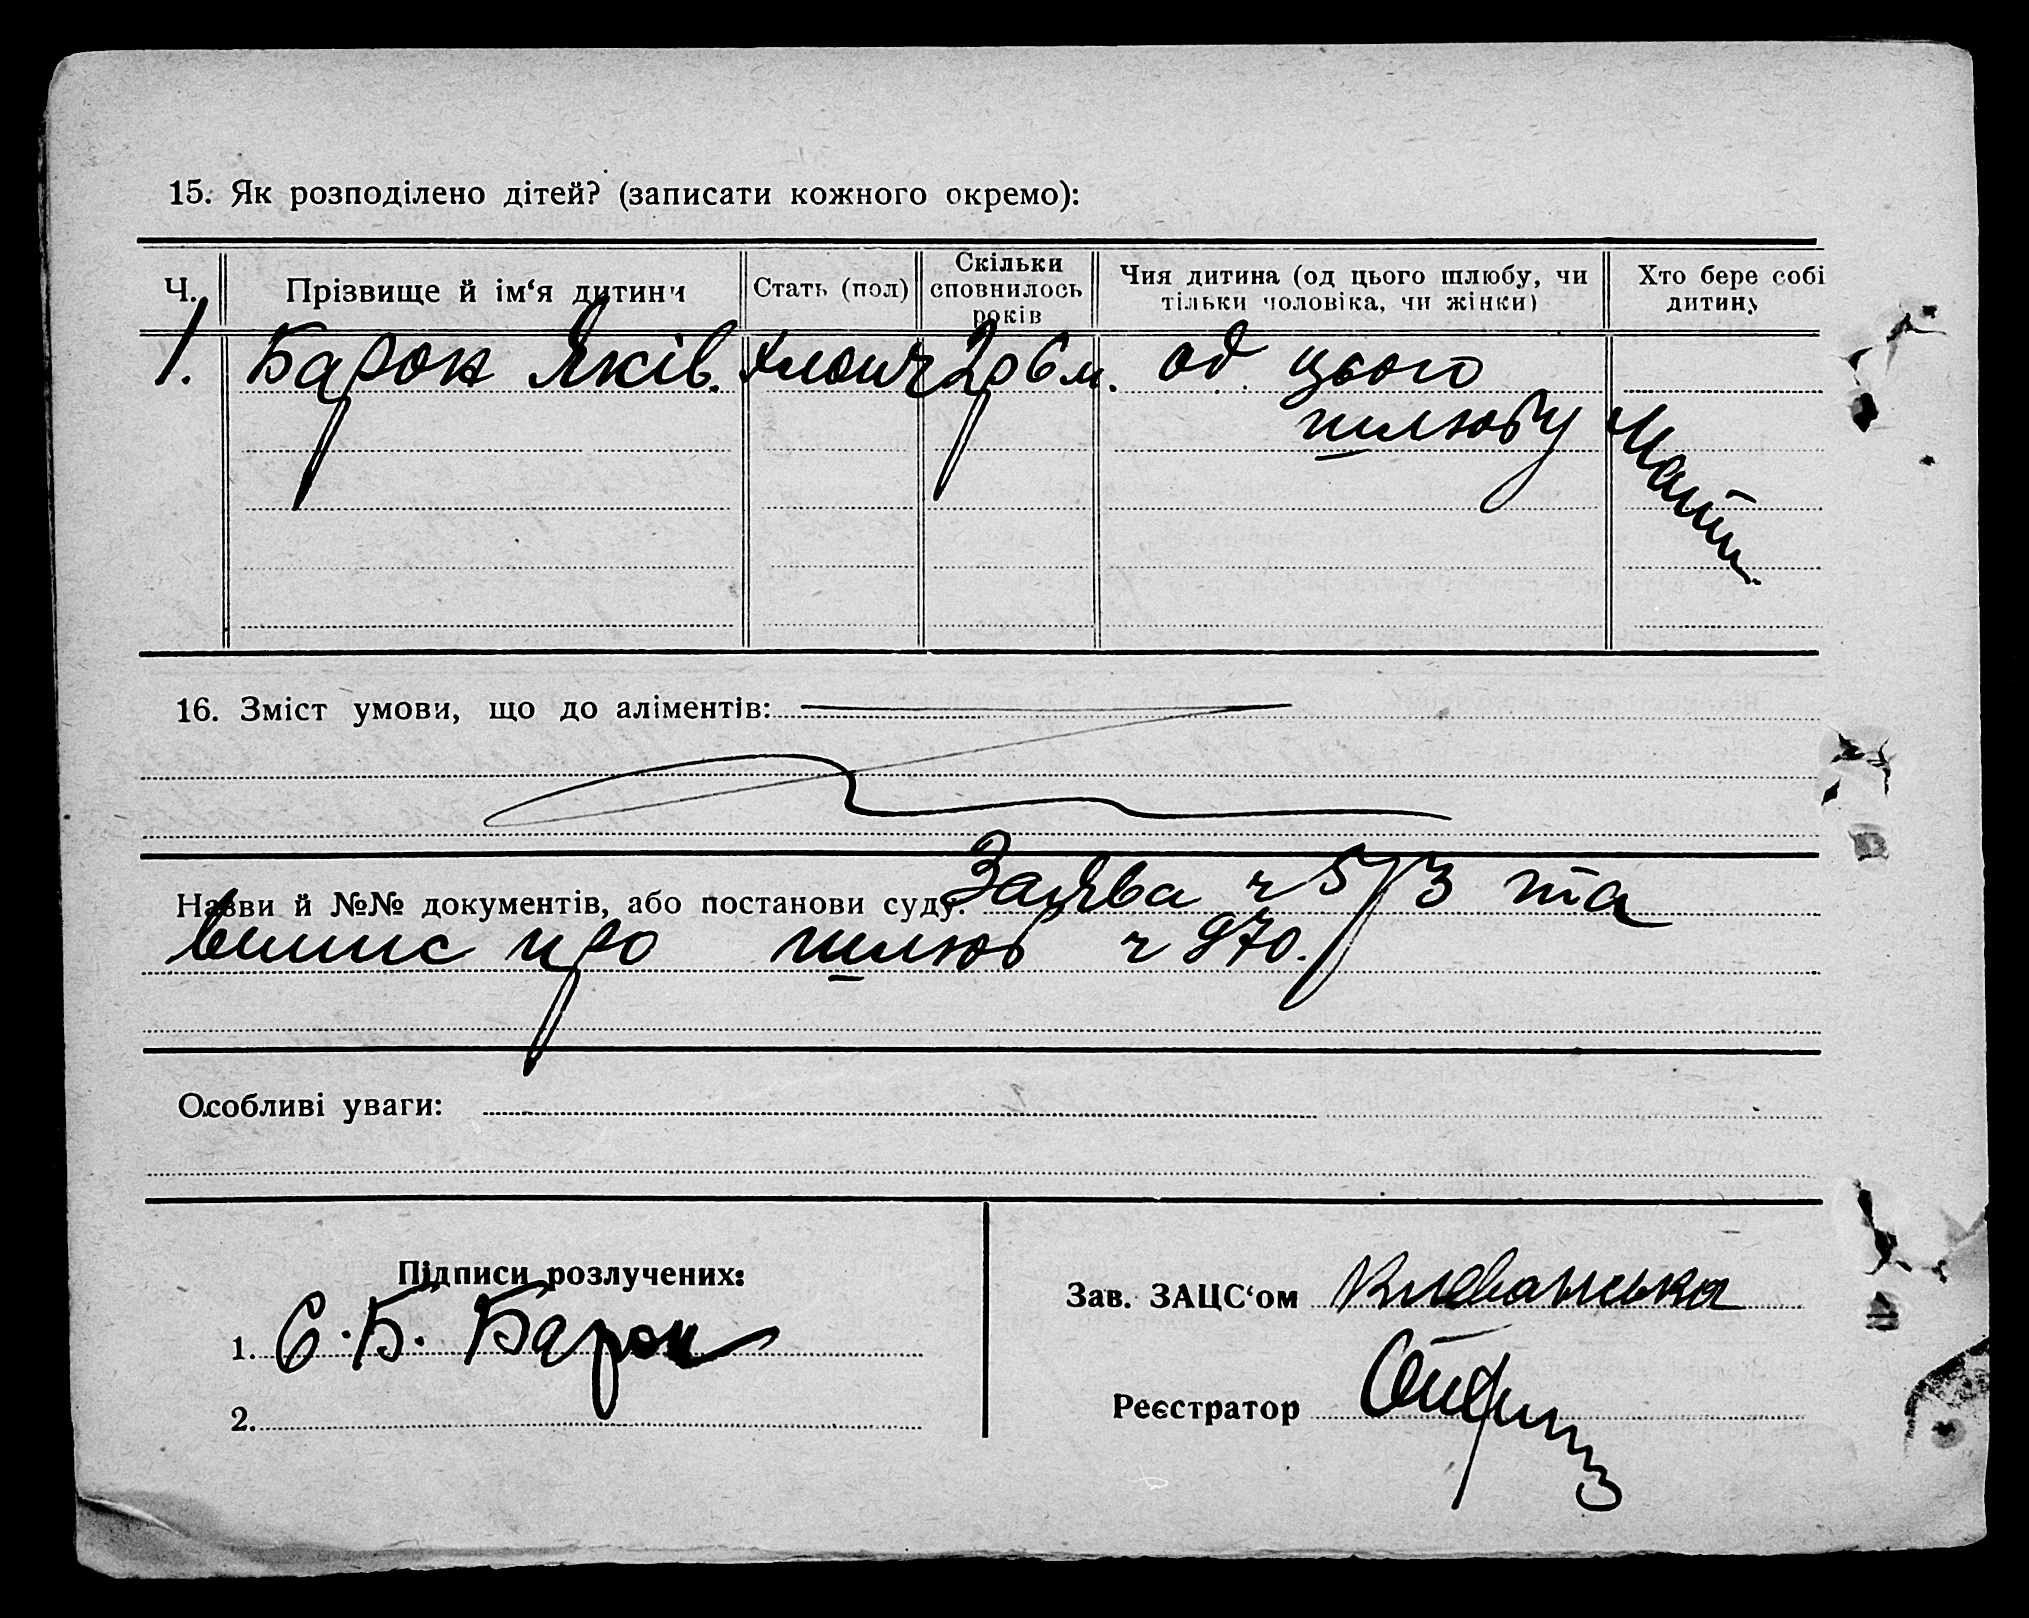 15. Як розподілено дітей? (записати кожного окремо):
Ч. Прізвище й ім‘я дитини Стать (пол) Скільки сповнилось років Чия дитина (од цього шлюбу, чи тільки чоловіка, чи жінки) Хто бере собі дитину
1. Барон Яків. хлопч 2р 6 м. од цього
шлюбу Мати.
16. Зміст умови, що до аліментів:
Назви й №№ документів, або постанови суду: Заява ч 573 та
випис про шлюб ч 970.
Особливі уваги:
Підписи розлучених:
Зав. ЗАЦС‘ом
1. С. Б. Барон
Реєстратор
2.